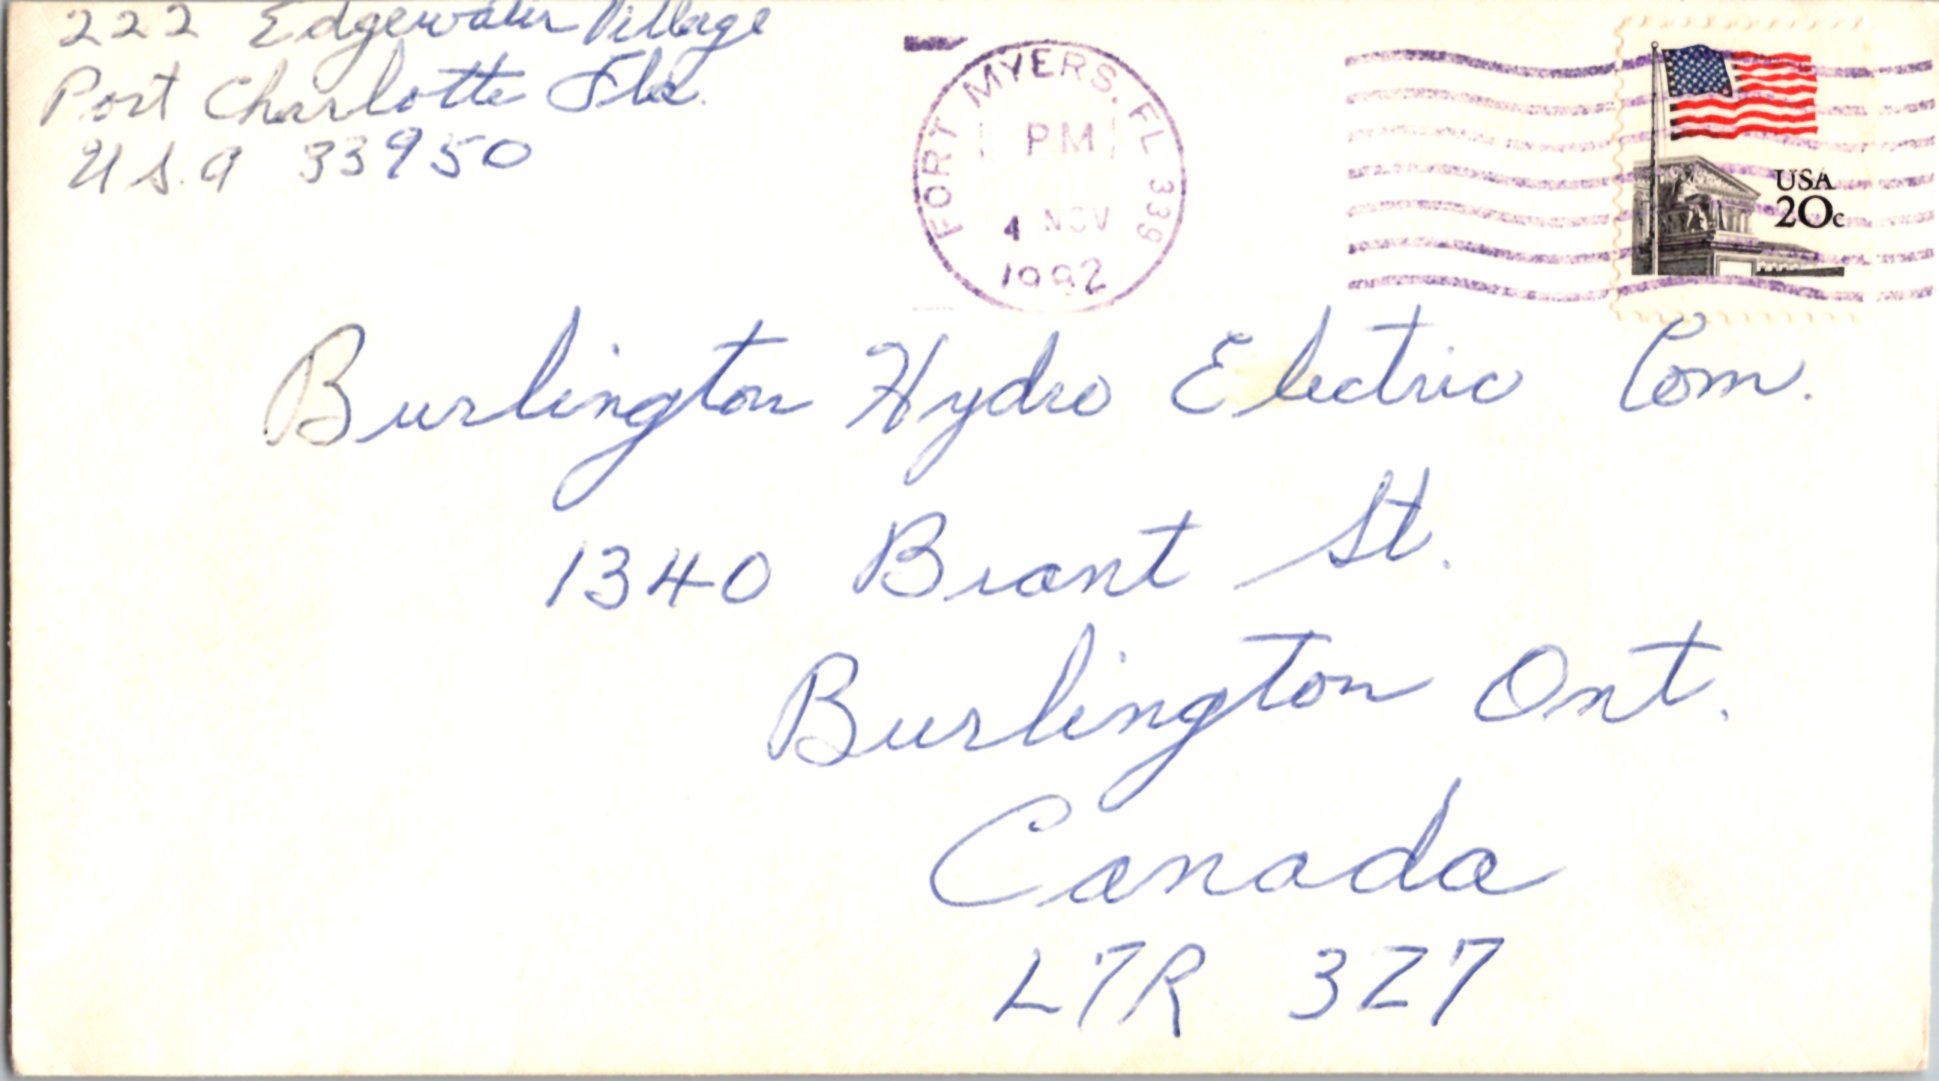 222 Edgewater Village
Port Charlotte Fla.
U.S.A 33950
FORT MYERS, FL 339
PM
4 NOV
1992
USA
20c
Burlington Hydro Electric Com.
1340 Brant St.
Burlington Ont.
Canada
L7R 3Z7